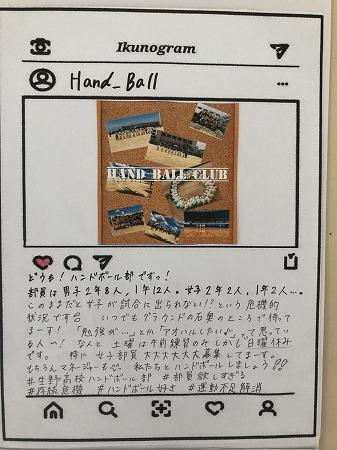 Ikunogram
Hand_Ball
HAND BALL CLUB
どうも！ハンドボール部ですっ！
部員は男子2年8人，1年12人。女子2年2人，1年2人…。
このままだと女子が試合に出られない!?という危機的
状況です いつもグラウンドの右奥のところで待って
まーす！「勉強が…」とか「アオハルしたい♪」って思ってい
る人〜！なんと 土曜は午前練習のみ しかも日曜休み
です。 特に 女子部員 大大大大大募集してまーす。
もちろんマネージャーも… 私たちとハンドボールしましょう!!
#生野高校ハンドボール部 #部員欲しすぎる
#存続危機 #ハンドボール好き #運動不足解消